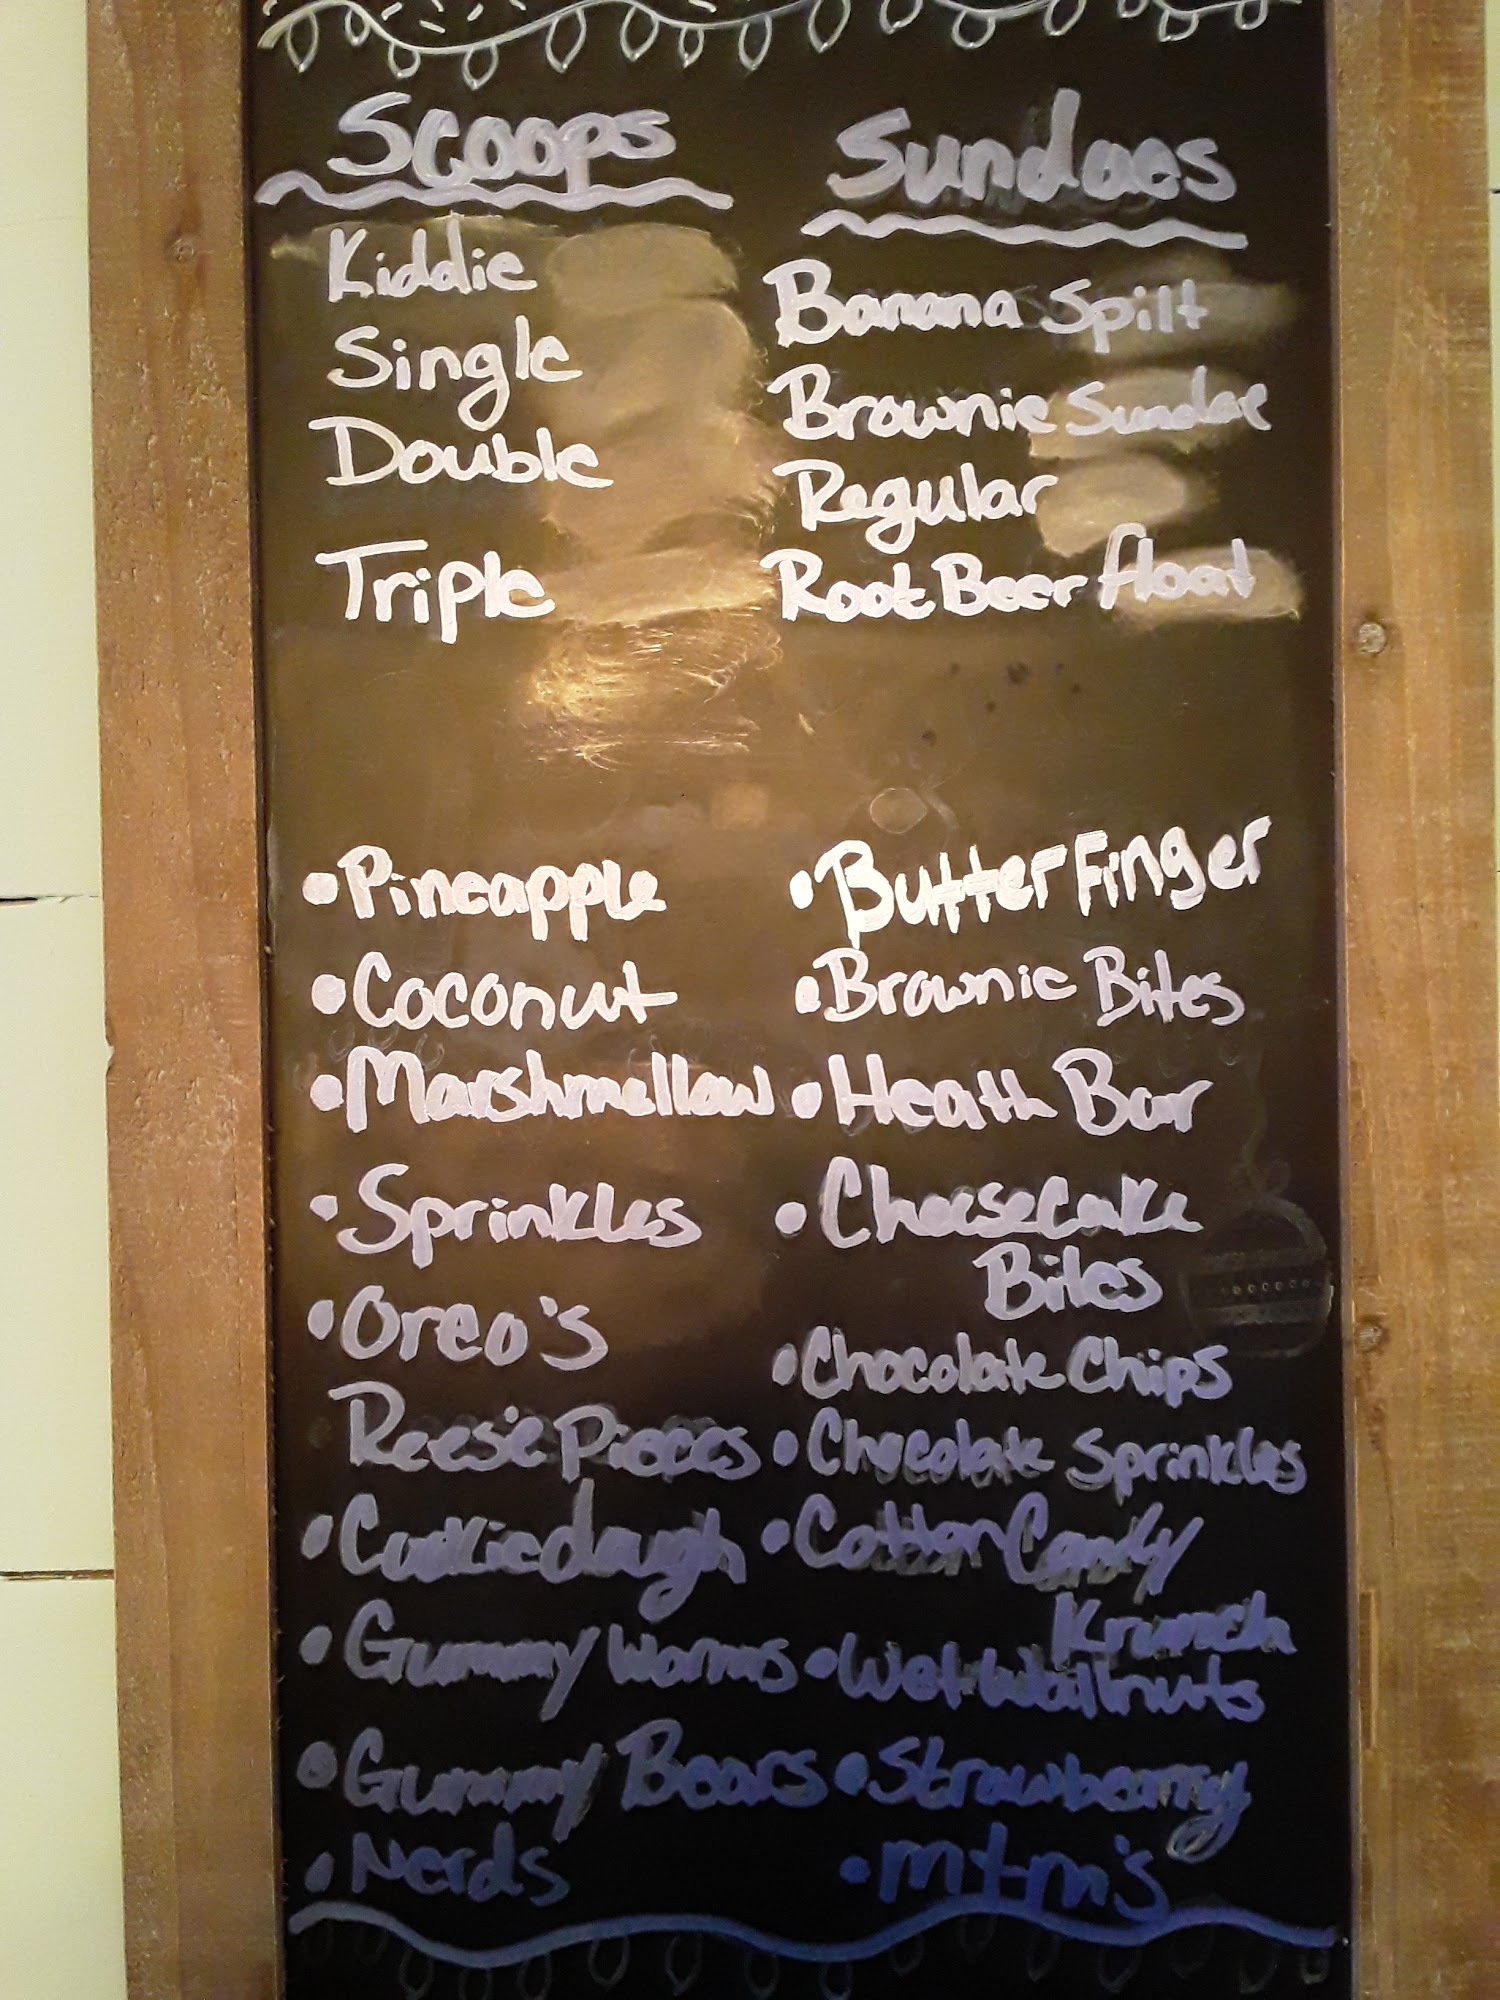 Scoops
Kiddie
Single
Double
Triple
Sundaes
Banana Spilt
Brownie Sundae
Regular
Root Beer float
• Pineapple
• Coconut
• Marshmallow
• Sprinkles
• Oreo's
Reese's Pieces
• Cookiedough
• Gummy Worms
• Gummy Bears
• Nerds
• Butter Finger
• Brownie Bites
• Heath Bar
• Cheesecake
Bites
• Chocolate Chips
• Chocolate Sprinkles
• Cotton Candy
Krunch
• Wet Wallnuts
• Strawberry
• m+m's